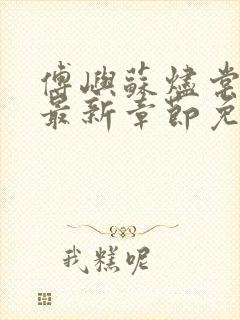 傅嶼蘇燼嘗
最新章節免
我糕呢